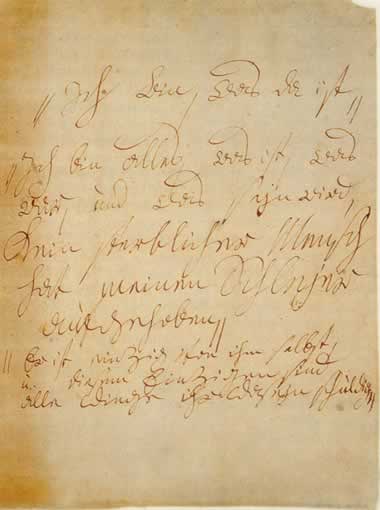 „ Ich bin, was da ist „
„ Ich bin alles, was ist, was
war, und was seyn wird,
kein sterblicher Mensch
hat meinen Schleyer
aufgehoben „
„ Er ist einzig von ihm selbst,
u. diesem Einzigen sind
alle Dinge ihr Daseyn schuldig „